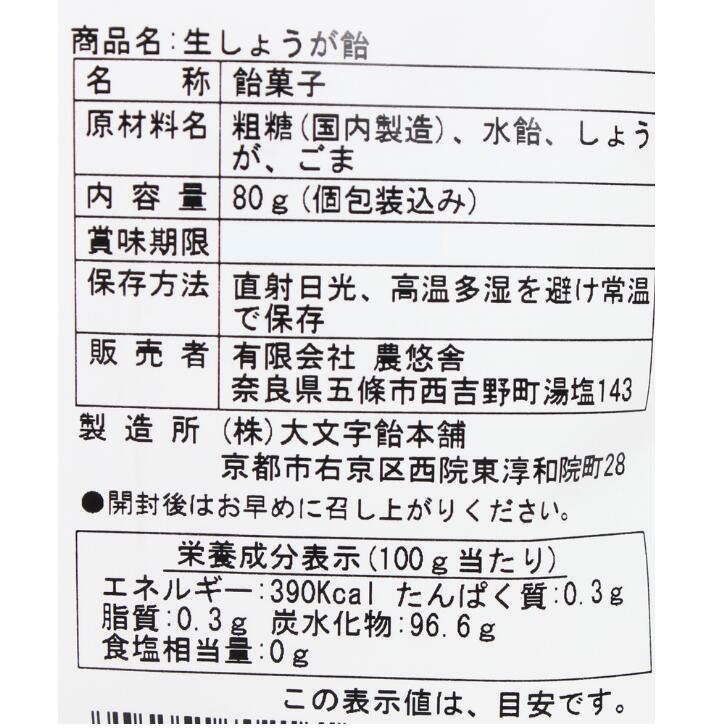 商品名:生しょうが飴
名称 飴菓子
原材料名 粗糖(国内製造)、水飴、しょう
が、ごま
内容量 80g(個包装込み)
賞味期限
保存方法 直射日光、高温多湿を避け常温
で保存
販売者 有限会社 農悠舎
奈良県五條市西吉野町湯塩143
製造所 (株)大文字飴本舗
京都市右京区西院東淳和院町28
●開封後はお早めに召し上がりください。
栄養成分表示(100g当たり)
エネルギー:390Kcal たんぱく質:0.3g
脂質:0.3g 炭水化物:96.6g
食塩相当量:0g
この表示値は、目安です。